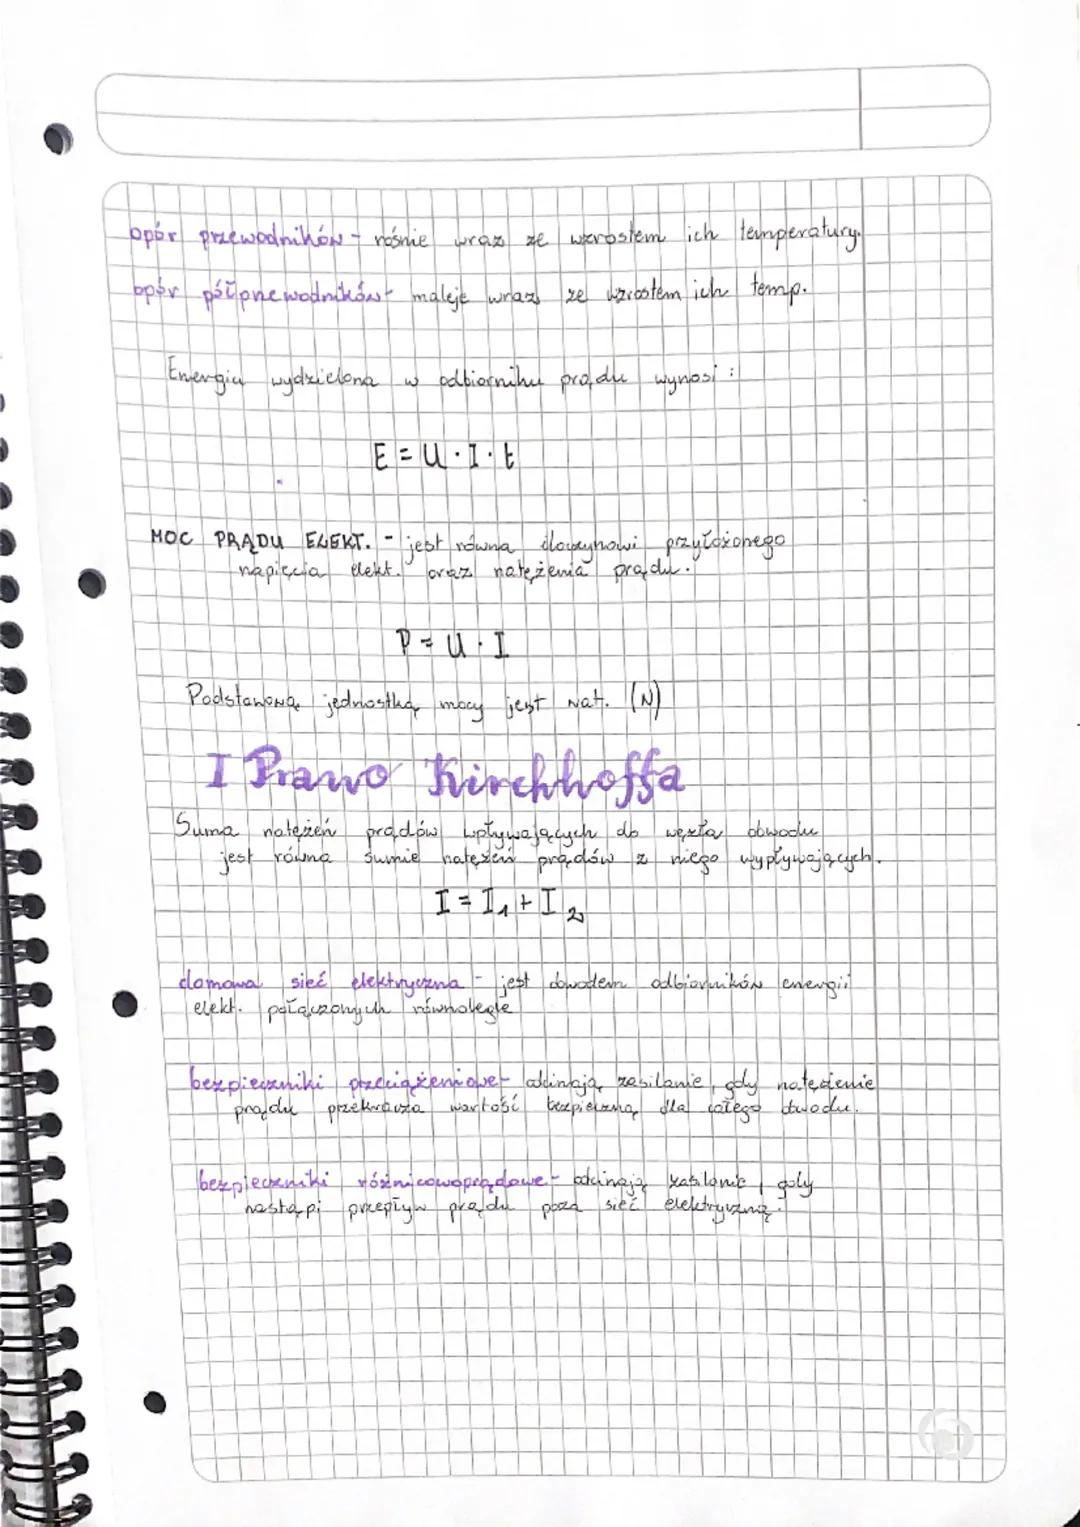 opór przewodników - rośnie wraz ze wzrostem ich temperatury.
opór półprzewodników - maleje wraz ze wzrostem ich temp.
Energia wydzielona w odbiorniku prądu wynosi:
E = U · I · t
MOC PRĄDU ELEKT. - jest równa iloczynowi przyłożonego
napięcia elekt. oraz natężenia prądu.
P = U · I
Podstawową jednostką mocy jest wat. (W)
I Prawo Kirchhoffa
Suma natężeń prądów wpływających do węzła obwodu
jest równa sumie natężeń prądów z niego wypływających.
I = I₁ + I₂
domowa sieć elektryczna - jest obwodem odbiorników energii
elekt. połączonych równolegle
bezpieczniki przeciążeniowe - odcinają zasilanie, gdy natężenie
prądu przekracza wartość bezpieczną dla całego obwodu.
bezpieczniki różnicowoprądowe - odcinają zasilanie, gdy
nastąpi przepływ prądu poza sieć elektryczną.